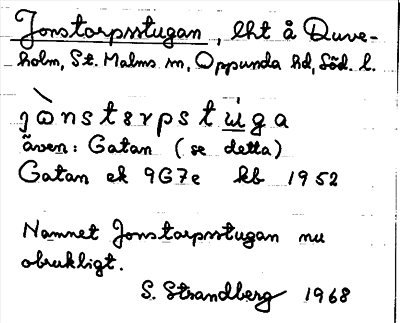 Jonstorpsstugan, lht å Duve-
holm, St. Malms sn, Oppunda hd, Söd. l.
jònstɤrpstúga
även: Gatan (se detta)
Gatan ek 9G7e kb 1952
Namnet Jonstorpsstugan nu
obrukligt.
S. Strandberg 1968